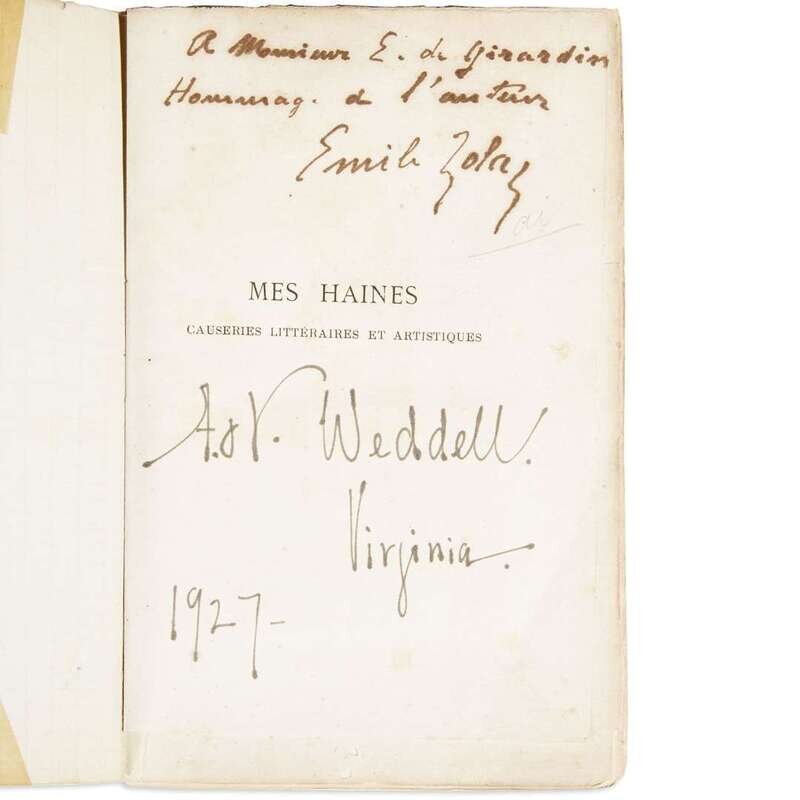 A Monsieur E. de Girardin
Hommag. de l'auteur
Emile Zola
MES HAINES
CAUSERIES LITTÉRAIRES ET ARTISTIQUES
A. & V. Weddell.
Virginia.
1927-